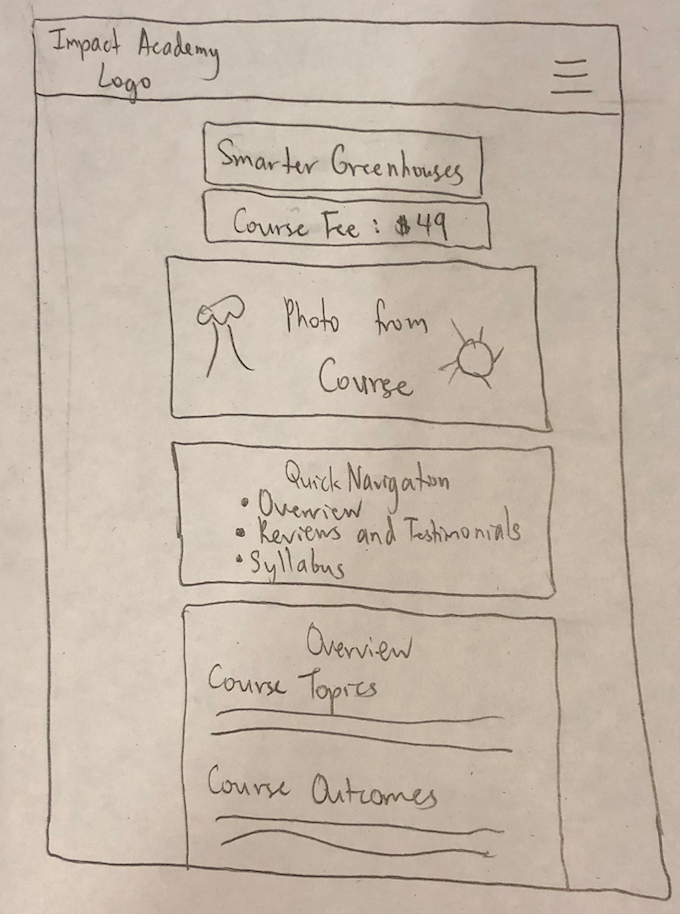 Impact Academy
Logo
Smarter Greenhouses
Course Fee : $49
Photo from
Course
Quick Navigation
• Overview
• Reviews and Testimonials
• Syllabus
Overview
Course Topics
Course Outcomes